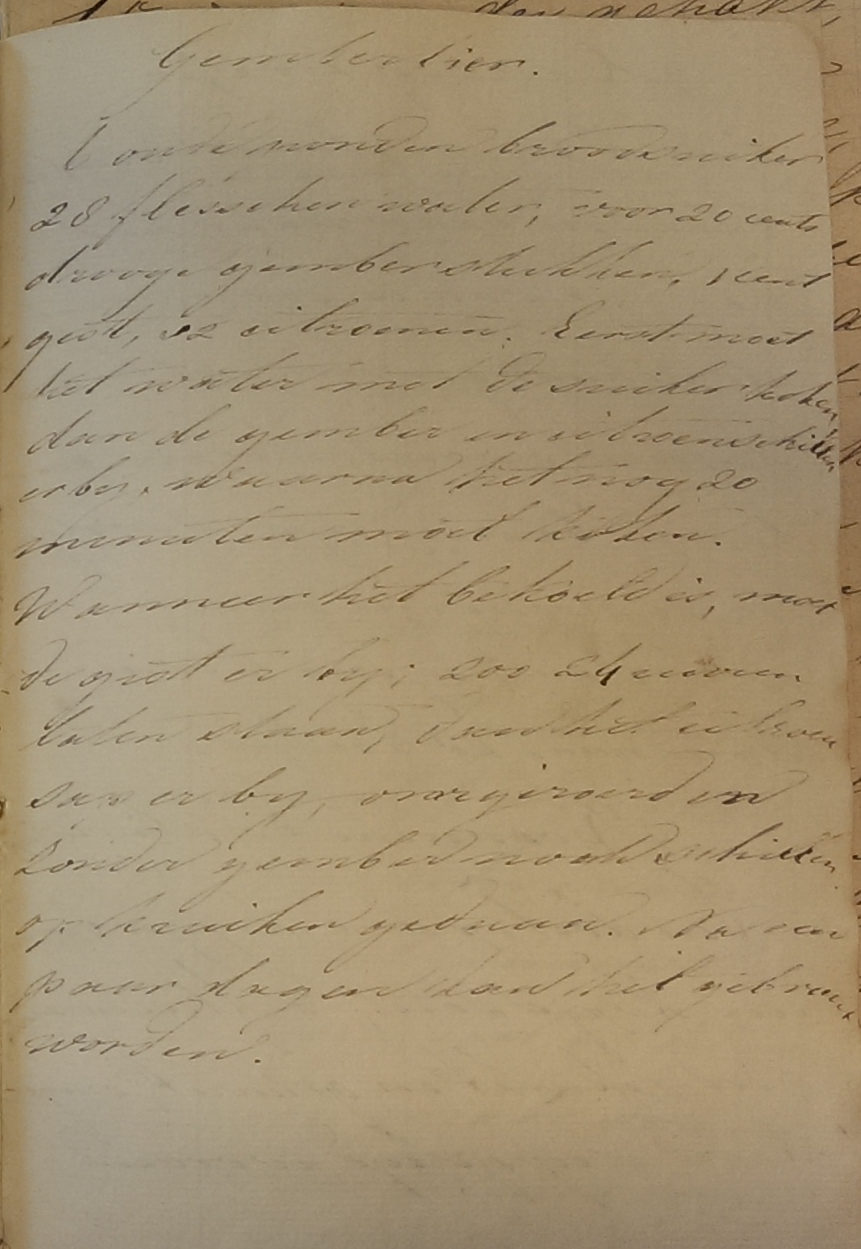 Gemberbier.
6 oude ponden broodsuiker
28 flesschen water, voor 20 cents
drooge gemberstukken, 1 cent
gist, 32 citroenen. Eerst moet
het water met de suiker koken,
dan de gember en citroenschillen
erby, waarna het nog 20
minuten moet koken.
Wanneer het bekoeld is, moet
de gist er by; zoo 24 uuren
laten staan, dan het citroen
sap er by, omgeroerd en
zonder gember noch schillen
op kruiken gedaan. Na een
paar dagen kan het gebruikt
worden.